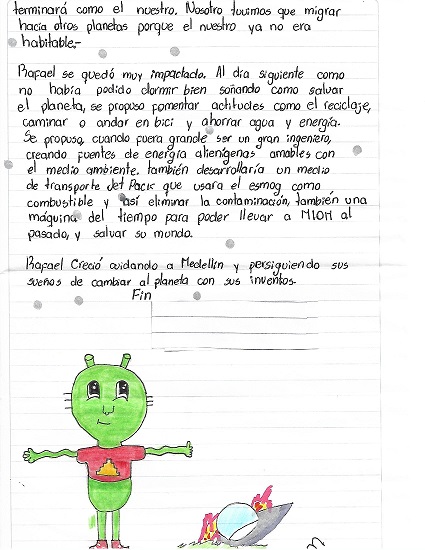 terminará como el nuestro. Nosotro tuvimos que migrar
hacía otros planetas porque el nuestro ya no era
habitable.-
Rafael se quedó muy impactado. Al día siguiente como
no había podido dormir bien soñando como salvar
el planeta, se propuso fomentar actitudes como el reciclaje,
caminar o andar en bici y ahorrar agua y energía.
Se propuso, cuando fuera grande ser un gran ingeniero,
creando fuentes de energía alienígenas amables con
el medio ambiente. también desarrollaría un medio
de transporte Jet Pack que usara el esmog como
combustible y así eliminar la contaminación, también una
máquina del tiempo para poder llevar a MIOM al
pasado, y salvar su mundo.
Rafael Creció cuidando a Medellín y persiguiendo sus
sueños de cambiar al planeta con sus inventos.
Fin